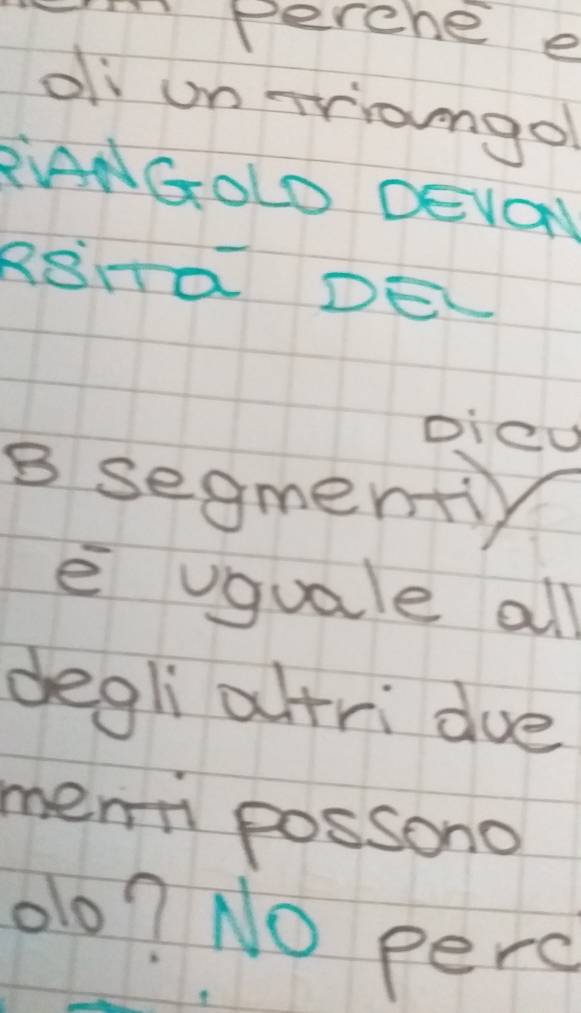 perchē e
di un triangol
RiANGOLO DEVON
RSiTā DEL
Dicu
3 segmenti
ē uguale all
degli altri due
menti possono
olo? NO perc